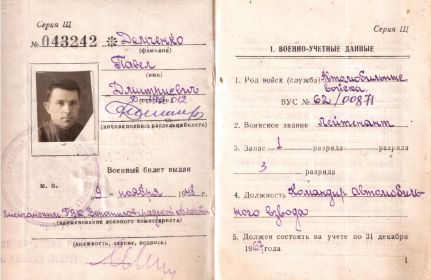 Серия Щ
№ 043242 ※ Демченко
(фамилия)
Павел
(имя)
Дмитриевич
(отчество)
(личная подпись владельца билета)
Военный билет выдан
М. П. 9 " ноября 1948 г.
РВК
(наименование военкомата)
(должность, звание, подпись)
Серия Щ
I. ВОЕННО-УЧЕТНЫЕ ДАННЫЕ
1. Род войск (служба) Автомобильные
войска.
ВУС № 62/00871
2. Воинское звание Лейтенант
3. Запас 1 разряда
3 разряда
4. Должность Командир автомобиль-
ного взвода
5. Должен состоять на учете по 31 декабря
1967 года
1